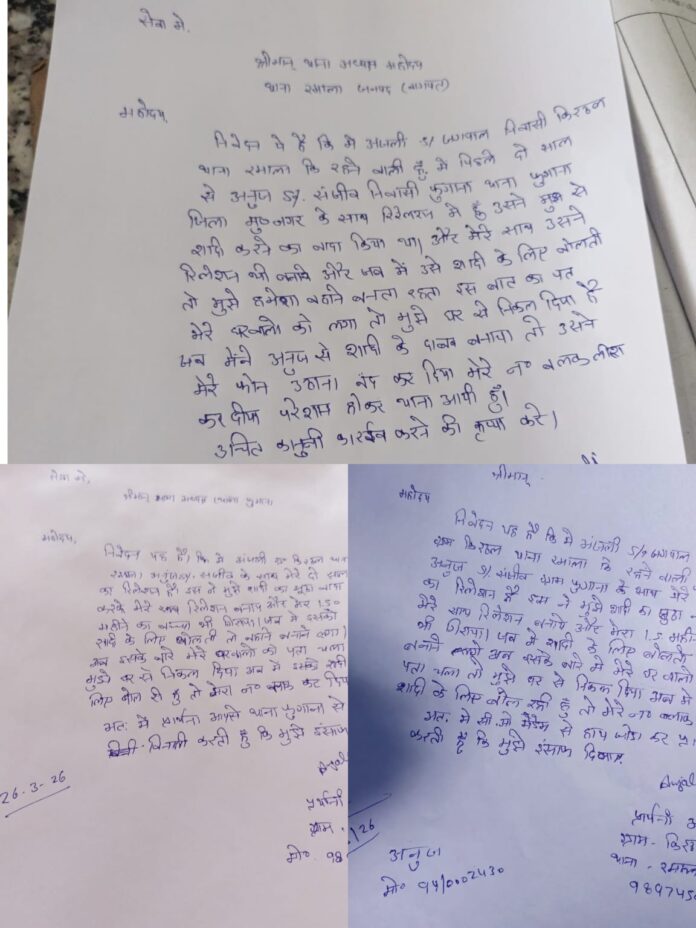 सेवा मे,
श्रीमान् थाना अध्यक्ष महोदय
थाना रमाला जनपद (बागपत)
महोदय,
निवेदन ये है कि मे अंजली S/ जयपाल निवासी किरठल
थाना रमाला कि रहने वाली हूँ मे पिछले दो साल
से अनुज S/. संजीव निवासी फुगाना थाना फुगाना
जिला मु०नगर के साथ रिलेशन मे हूँ उसने मुझ से
शादी करने का वादा किया था। और मेरे साथ उसने
रिलेशन भी बनाये और जब में उसे शादी के लिए बोलती
तो मुझे हमेशा बहाने बनाता रहता इस बात का पता
मेरे घरवालो को लगा तो मुझे घर से निकल दिया है
जब मेंने अनुज से शादी के दाबब बनाया तो उसने
मेरे फोन उठाना बंद कर दिया मेरे न०
कर दीया परेशान होकर थाना आयी हूँ।
उचित कानुनी करने की कृप्या करे।
सेवा मे,
श्रीमान थाना अध्यक्ष थाना फुगाना
महोदय,
निवेदन यह है। कि मे अंजली किरठल थाना
रमाला। अनुज S/. संजीव के साथ मेरे दो साल
का रिलेशन है। इस ने मुझे शादी का झुठा वादा
करके मेरे साथ रिलेशन बनाये और मेरा 1.50
महीने का बच्चा भी गिराया। जब मे इसको
शादी के लिए बोलती तो बहाने बनाने लगा।
अब इसके बारे मेरे घरवालो को पता चला
मुझे घर से निकल दिया अब मे इसको शादी
लिए बोल रही हु तो मेरा न० ब्लाक कर दिया
अतः मे प्रार्थना थाना फुगाना से
विनती करती हूँ कि मुझे इंसाफ
26-3-26
प्रार्थनी
ग्राम -
मो०. 98
श्रीमान्
महोदय
निवेदन यह है कि मे अंजली S/o जयपाल
ग्राम किरठल थाना रमाला के रहने वाली
अनुज S/. संजीव ग्राम फुगाना के साथ मेरे
का रिलेशन है इस ने मुझे शादी का झुठा
मेरे साथ रिलेशन बनाये और मेरा 1.5 महीने
भी गिराया। जब मे शादी के लिए बोलती
बनाने अब इसके बारे मे मेरे घर वालो
पता चला तो मुझे घर से निकल दिया अब मे
शादी के लिए बोल रही हूँ तो मेरे न० ब्लाक
अतः मे सी.ओ मैडम से हाथ जोडकर
करती हूँ कि मुझे इंसाफ दिलाए
प्रार्थनी
ग्राम - किर
थाना - रमाला
9897450
अनुज
मो०